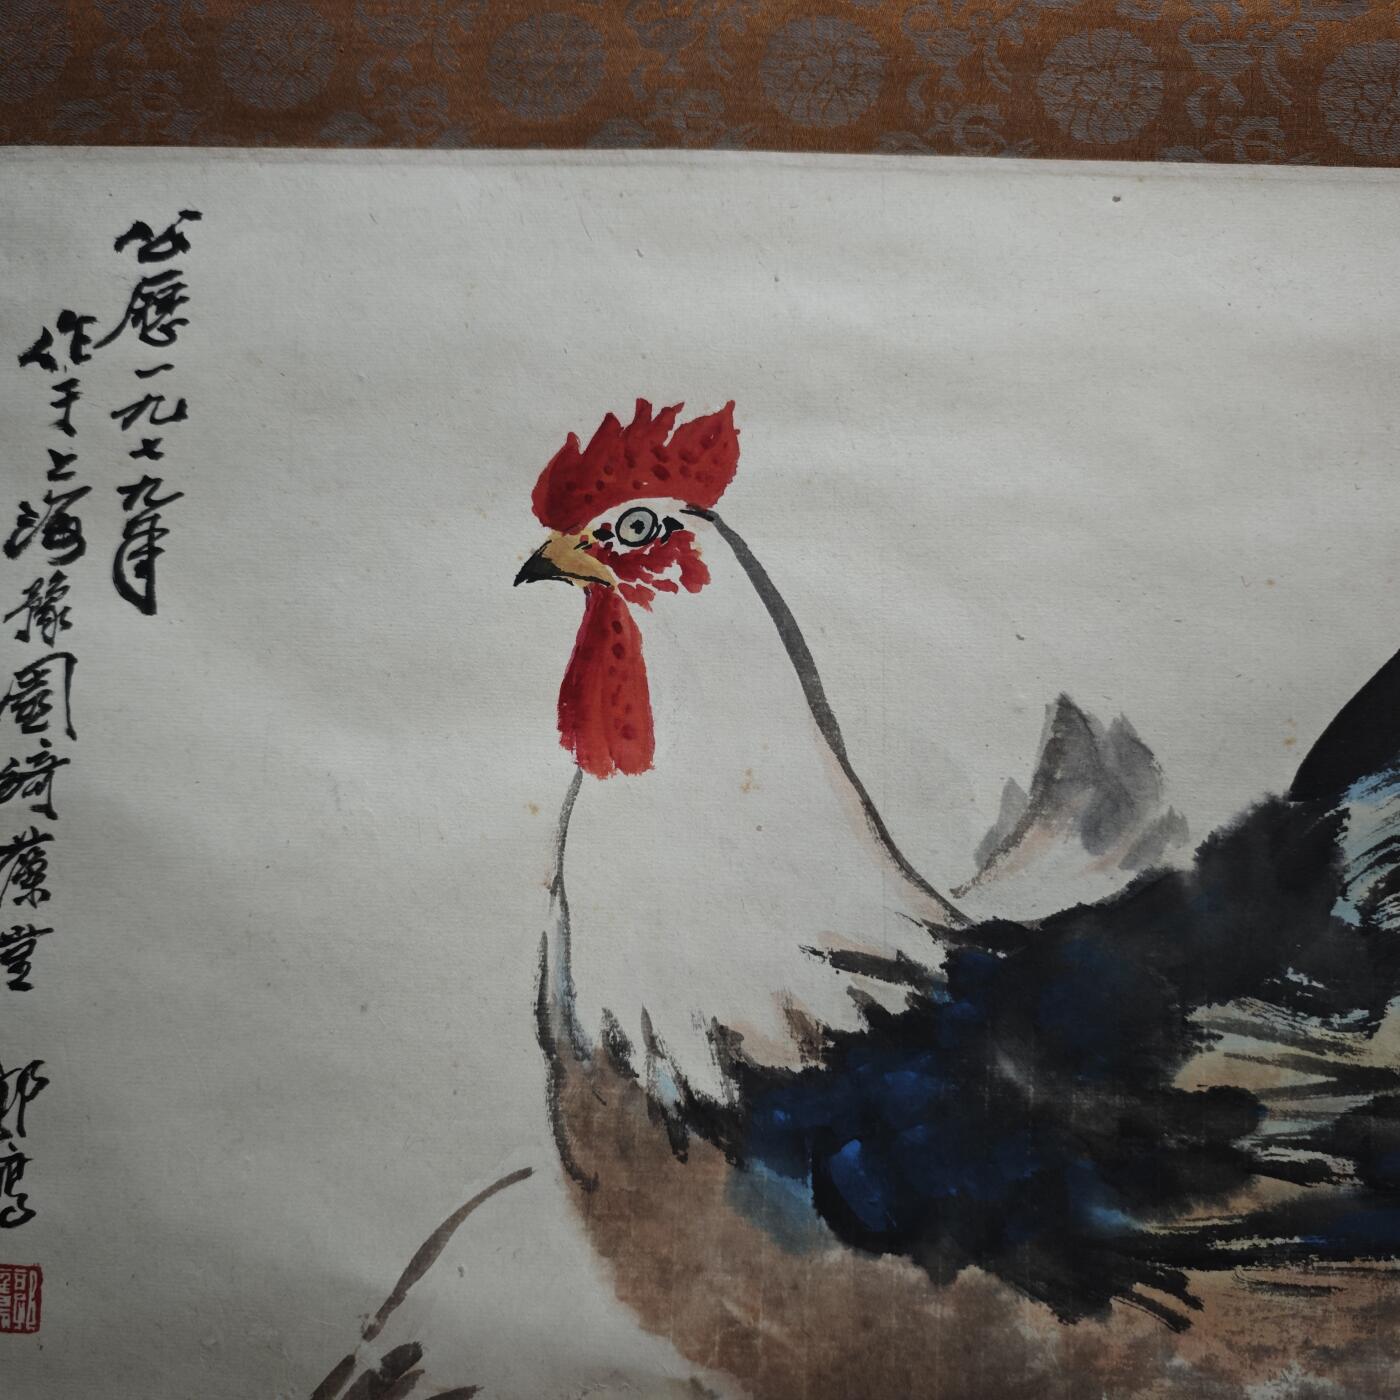 公歷一九七九年
作于上海豫園綺藻堂